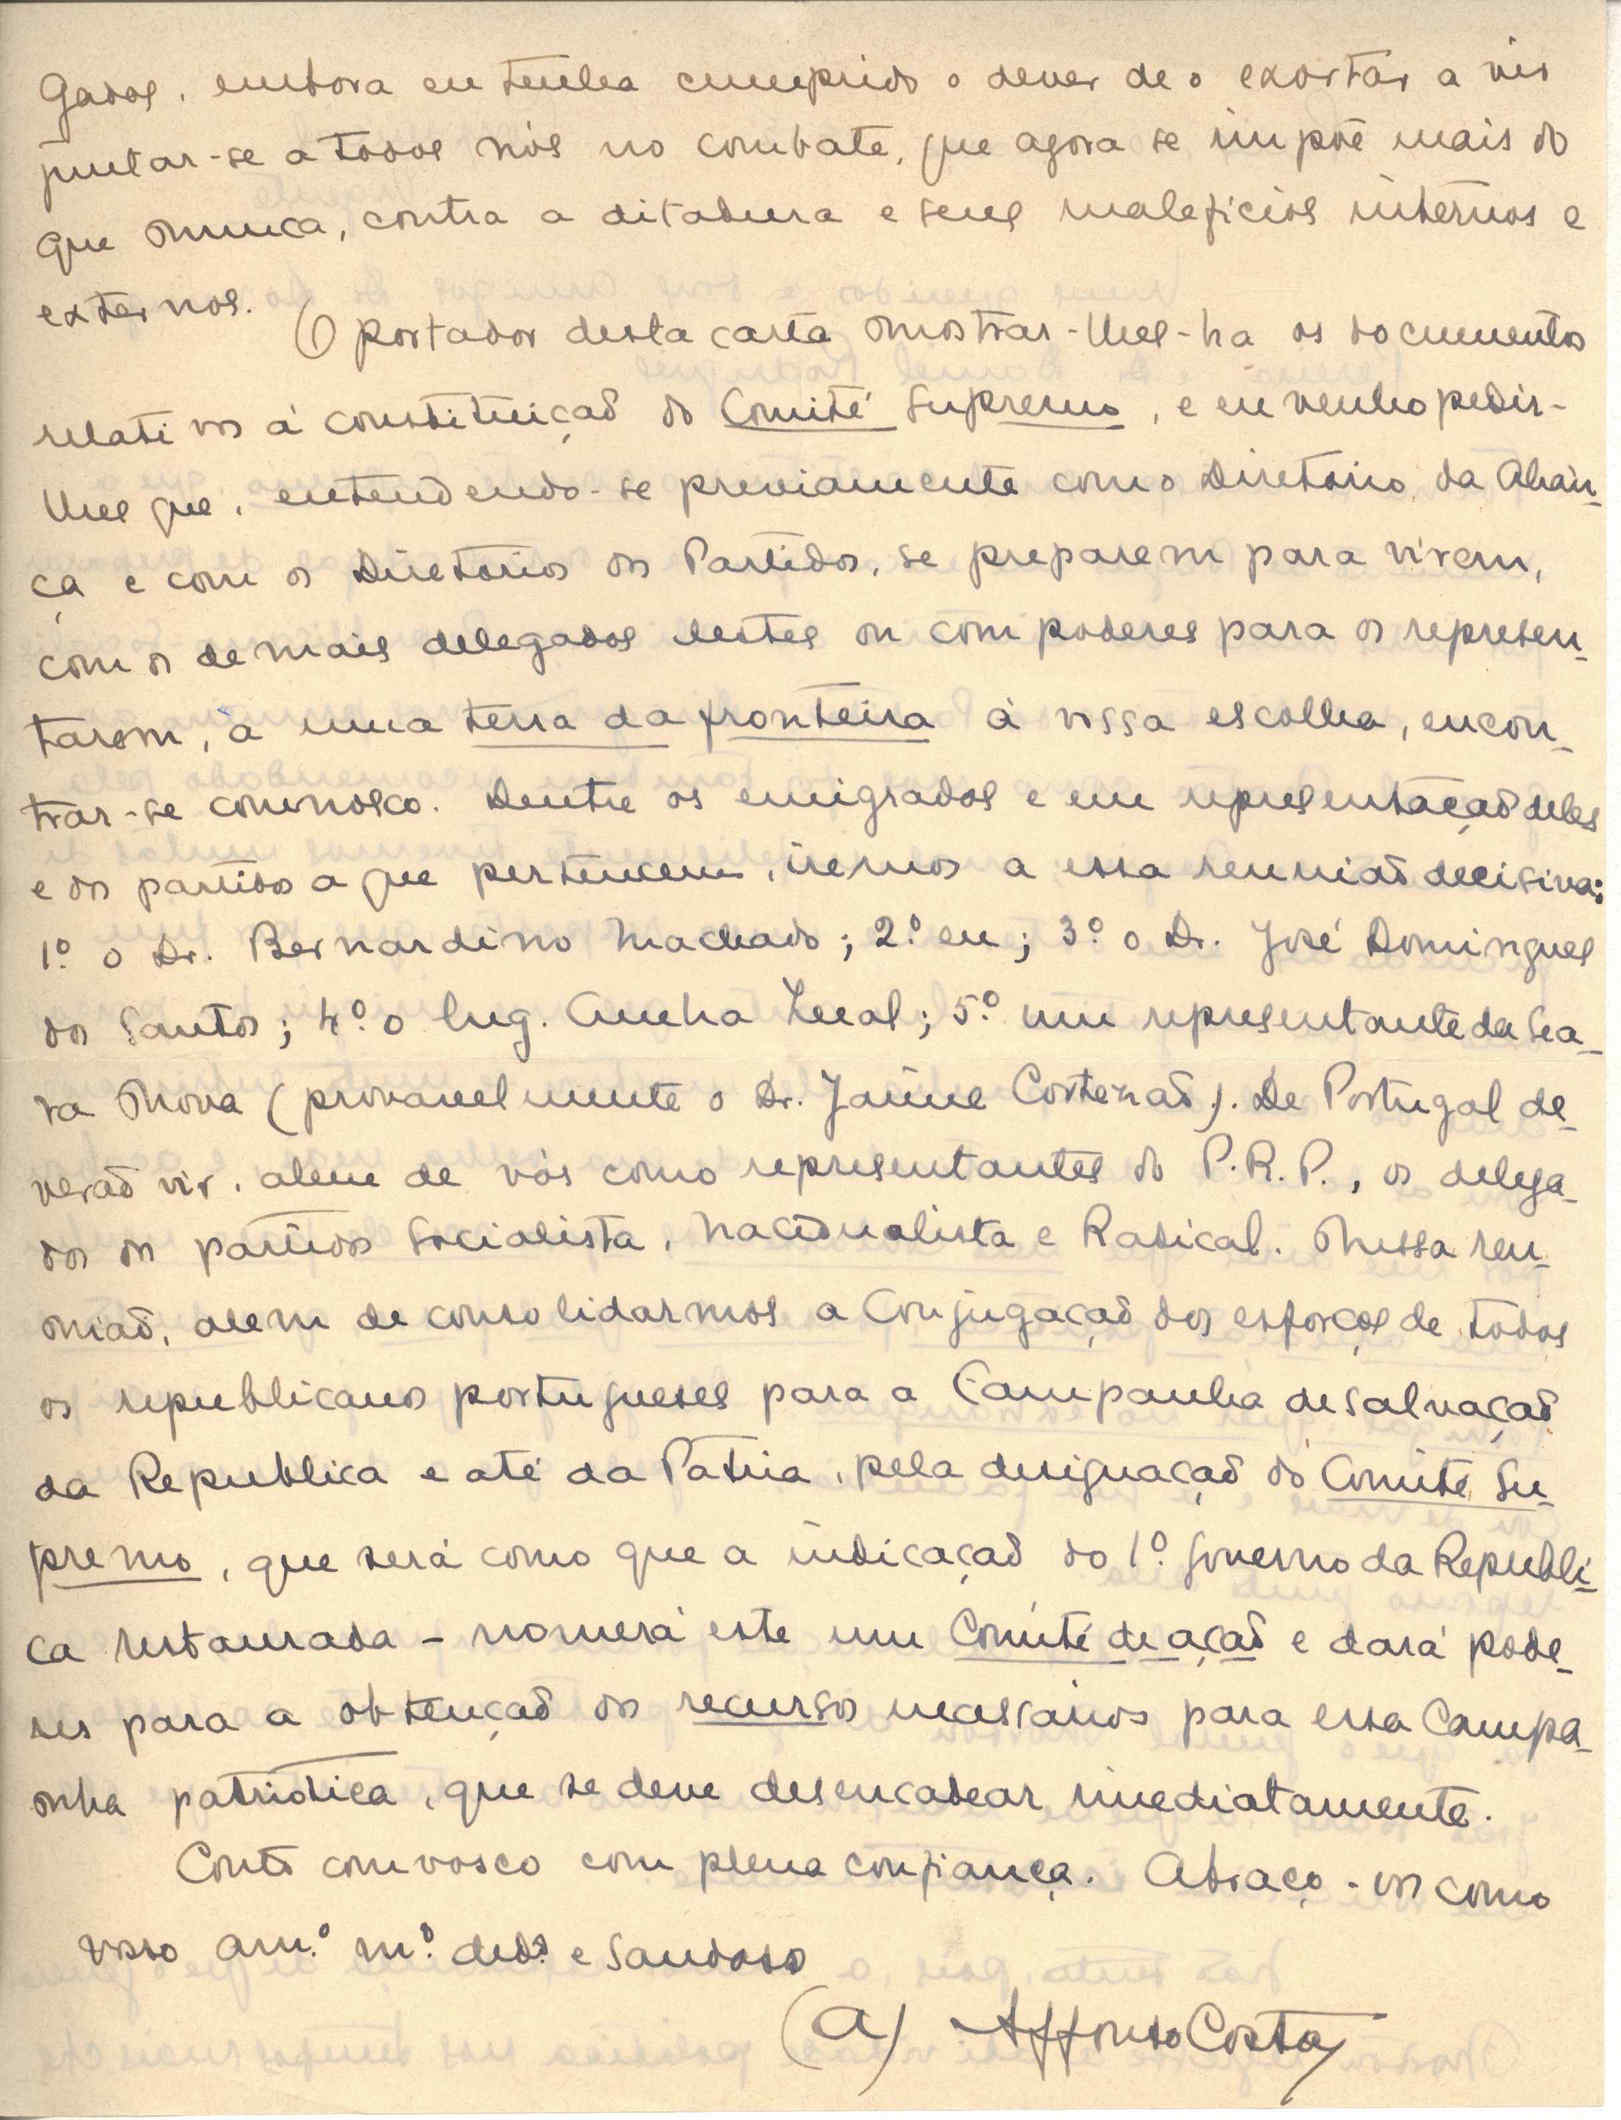 gados, embora eu tenha cumprido o dever de o exortar a vir
juntar-se a todos nós no combate, que agora se impõe mais do
que nunca, contra a ditadura e seus maleficios internos e
externos.
O portador desta carta mostrar-lhes-ha os documentos
relativos á constituição do Comité Supremo, e eu venho pedir-
lhes que, entendendo-se previamente com o Diretorio da Alian-
ça e com os Diretorios dos Partidos, se preparem para virem,
com os demais delegados destes ou com poderes para os represen-
tarem, a uma terra da fronteira á vossa escolha, encon-
trar-se comnosco. Dentre os emigrados e em representação deles
e dos partidos a que pertencem, iremos a essa reunião decisiva:
1º o Dr. Bernardino Machado; 2º eu; 3º o Dr. José Domingues
dos Santos; 4º o Eng. Cunha Leal; 5º um representante da Sea-
ra Nova (provavelmente o Dr. Jaime Cortezão). De Portugal de-
verão vir, alem de vós como representantes do P.R.P., os delega-
dos dos partidos Socialista, Nacionalista e Radical. Nessa reu-
nião, alem de consolidarmos a Conjugação dos esforços de todos
os republicanos portugueses para a Campanha de salvação
da Republica e até da Patria, pela designação do Comité Su-
premo, que será como que a indicação do 1º Governo da Republi-
ca restaurada – nomerá este um Comité de ação e dará pode-
res para a obtenção dos recursos necessarios para essa Campa-
nha patriotica, que se deve desencadear imediatamente.
Conto comvosco com plena confiança. Abraço-vos como
vosso am.º m.º ded.º e saudoso
(a) Affonso Costa